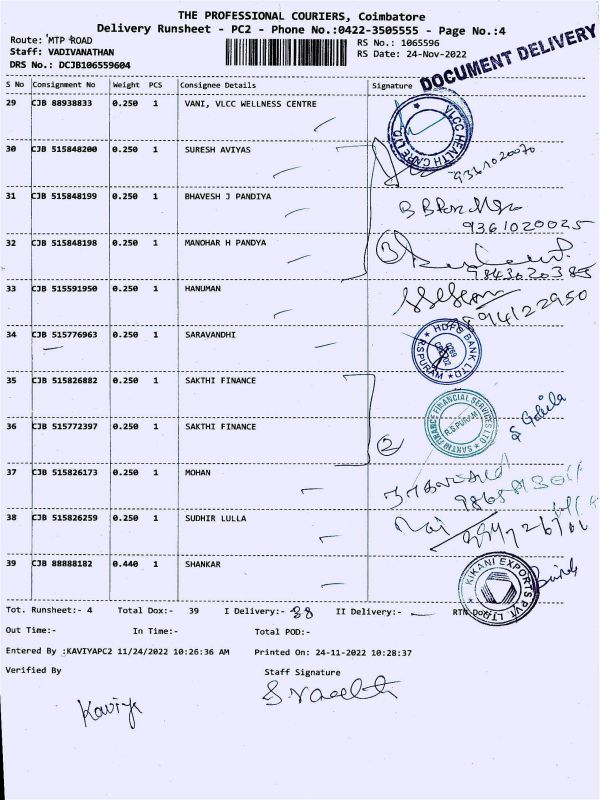 THE PROFESSIONAL COURIERS, Coimbatore
Delivery Runsheet - PC2 - Phone No.:0422-3505555 - Page No.:4
Route: MTP ROAD
RS No.: 1065596
Staff: VADIVANATHAN
RS Date: 24-Nov-2022
DRS No.: DCJB106559604
DOCUMENT DELIVERY
S No Consignment No Weight PCS Consignee Details Signature
29 CJB 88938833 0.250 1 VANI, VLCC WELLNESS CENTRE
VLCC HEALTH CARE LTD
30 CJB 515848200 0.250 1 SURESH AVIYAS
9361020070
31 CJB 515848199 0.250 1 BHAVESH J PANDIYA
9361020025
32 CJB 515848198 0.250 1 MANOHAR H PANDYA
3
33 CJB 515591950 0.250 1 HANUMAN
34 CJB 515776963 0.250 1 SARAVANDHI
HDFC BANK LTD
RSPURAM
35 CJB 515826882 0.250 1 SAKTHI FINANCE
SAKTHI FINANCE FINANCIAL SERVICES LTD
R.S.PURAM
36 CJB 515772397 0.250 1 SAKTHI FINANCE
2
37 CJB 515826173 0.250 1 MOHAN
38 CJB 515826259 0.250 1 SUDHIR LULLA
39 CJB 88888182 0.440 1 SHANKAR
KIKANI EXPORTS PVT. LTD
Tot. Runsheet:- 4 Total Dox:- 39 I Delivery:- 38 II Delivery:- RTN Dox
Out Time:- In Time:- Total POD:-
Entered By :KAVIYAPC2 11/24/2022 10:26:36 AM Printed On: 24-11-2022 10:28:37
Verified By Staff Signature
Kaviya